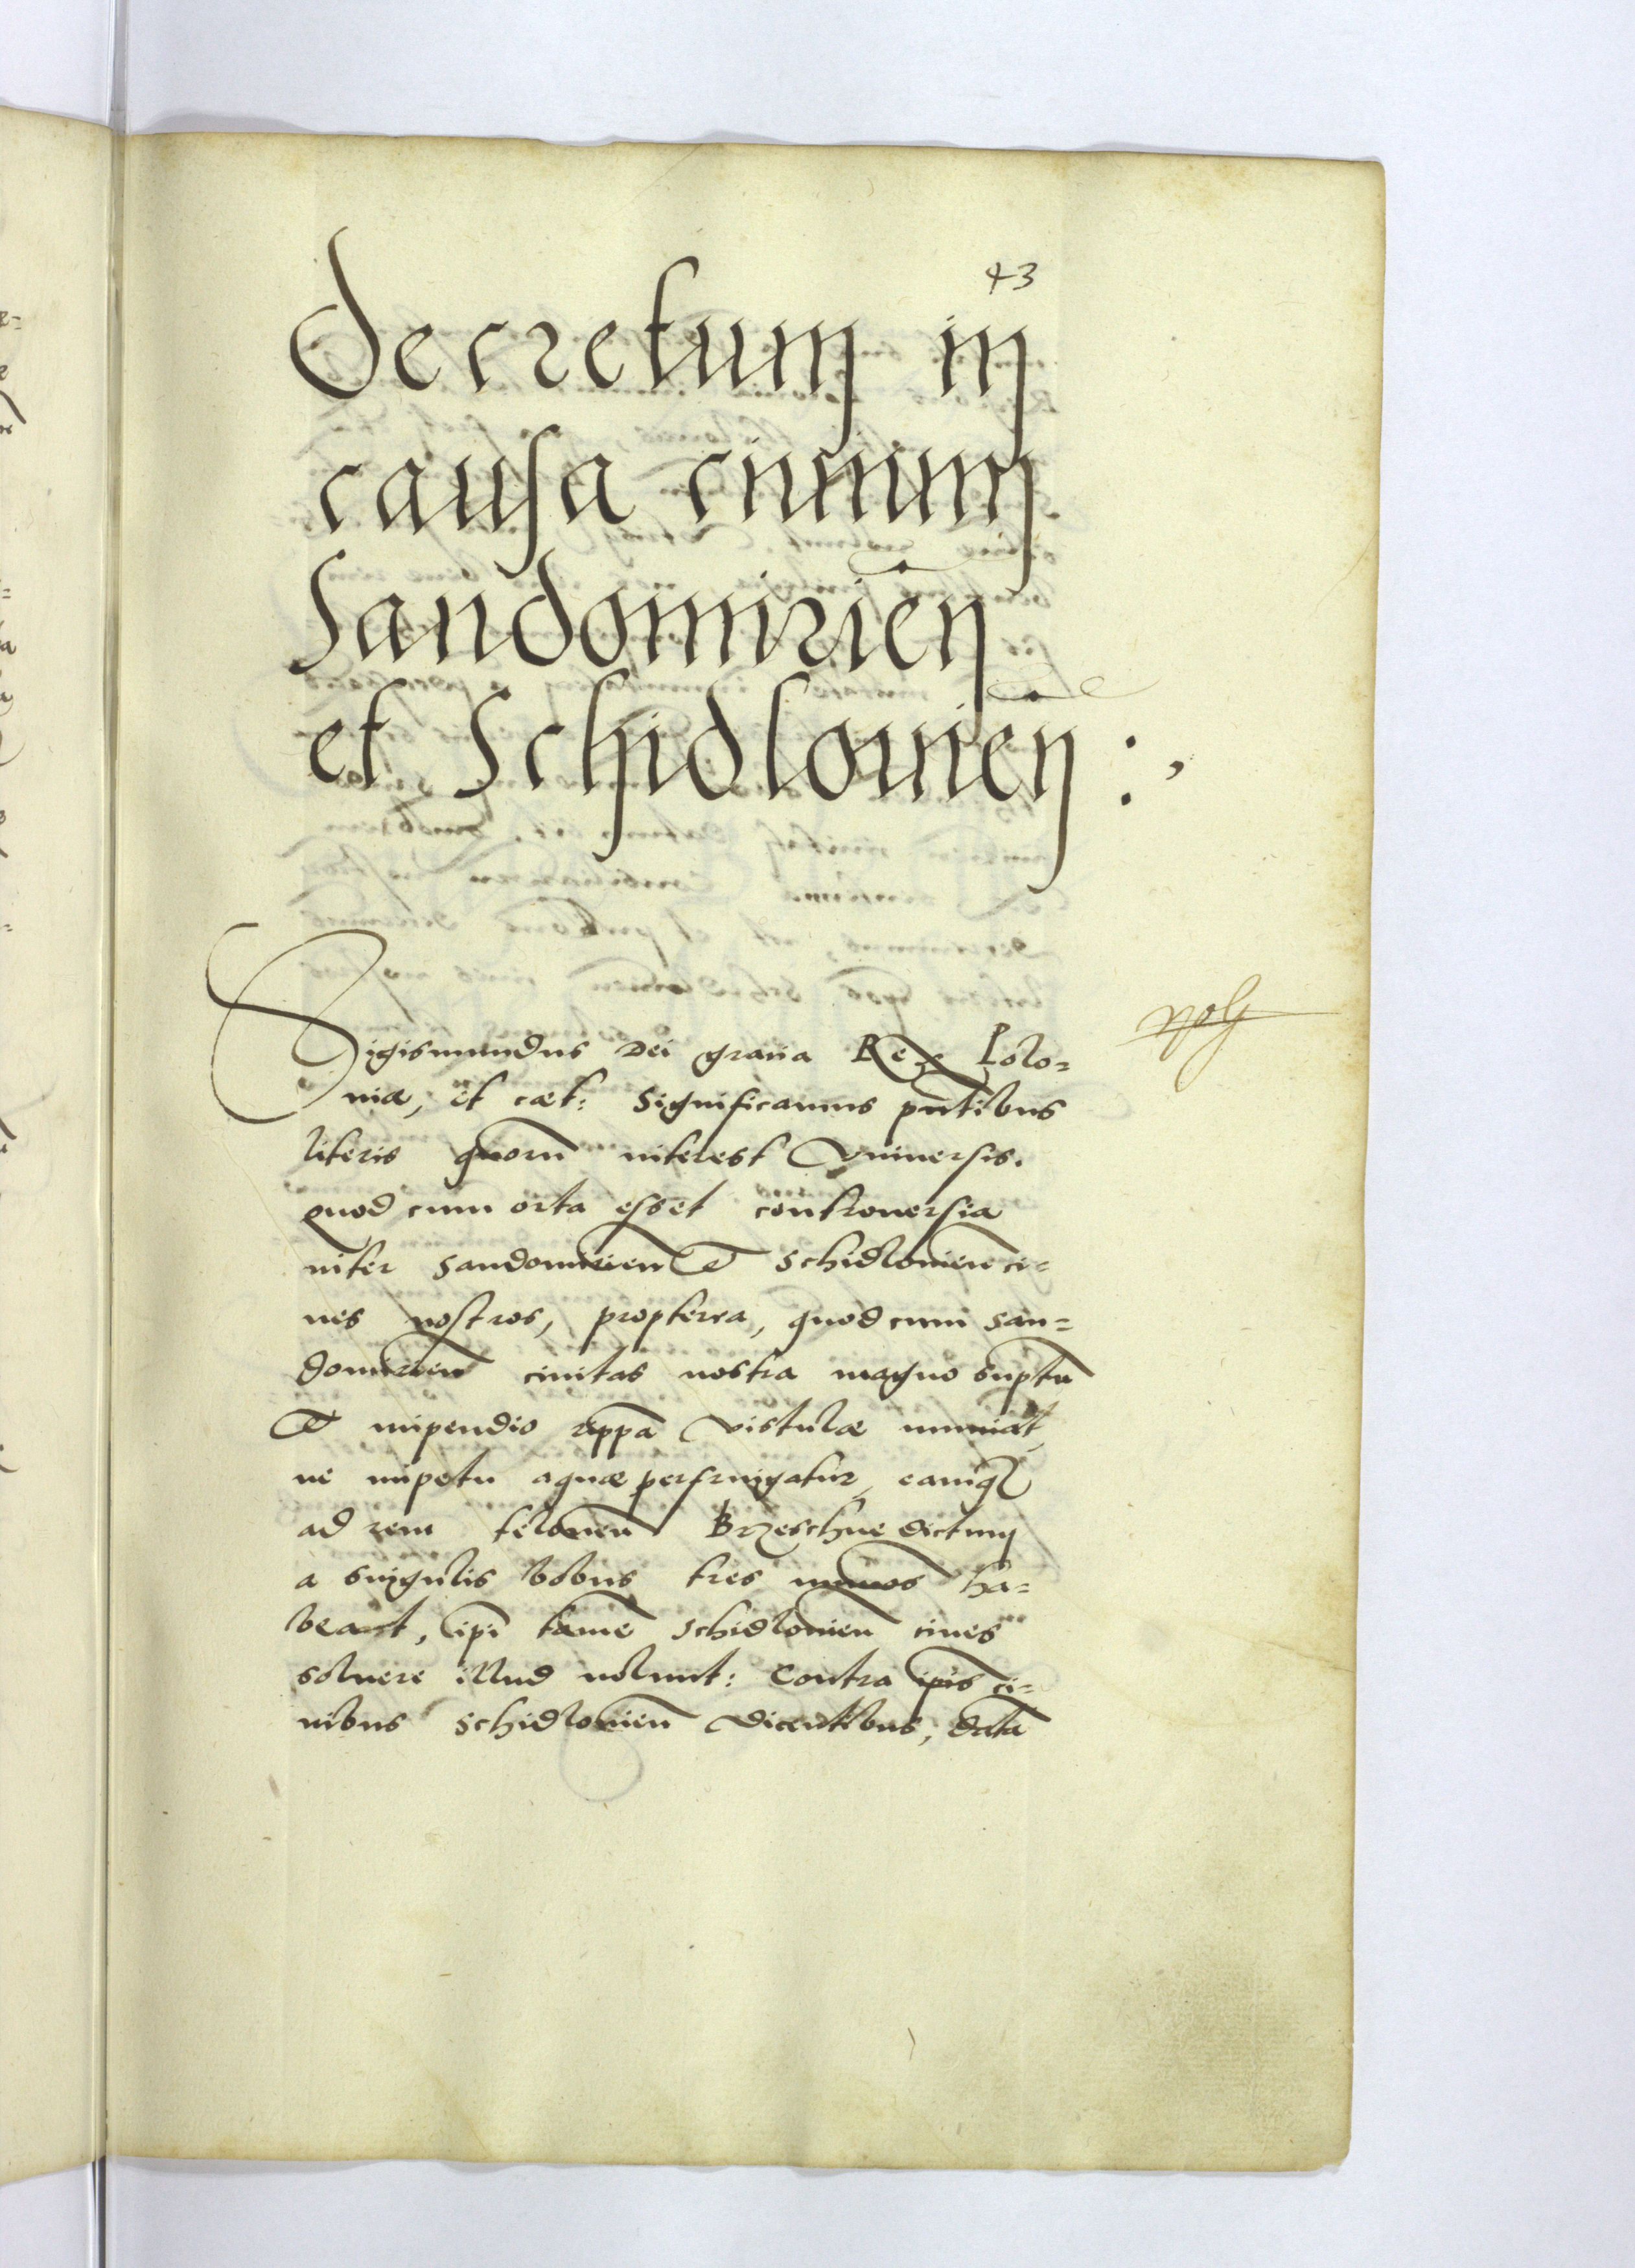 43
Decretum in
causa ciuium
Sandomirien̄
et Schidlouien̄ :,
Sigismundus Dei gratia Rex Polo=
niæ, et cæt: Significamus pn̄tibus
literis quorū interest Vniuersis.
quod cum orta esset controuersia
inter Sandomirien̄ et Schidlouien̄ ci=
ues nostros, propterea, quod cum San=
domirien̄ ciuitas nostra magno sūptu
et impendio rippā Vistulæ muniat,
ne impetu aquæ perfringatur, eamq̄
ad rem teloneū Brzeschne dictum
a singulis bobus tres nūmos ha=
beant, ipī tamē Schidlouien̄ ciues
soluere illud nolunt: Contra ip̄is ci=
uibus Schidlouien̄ dicentibus, datā